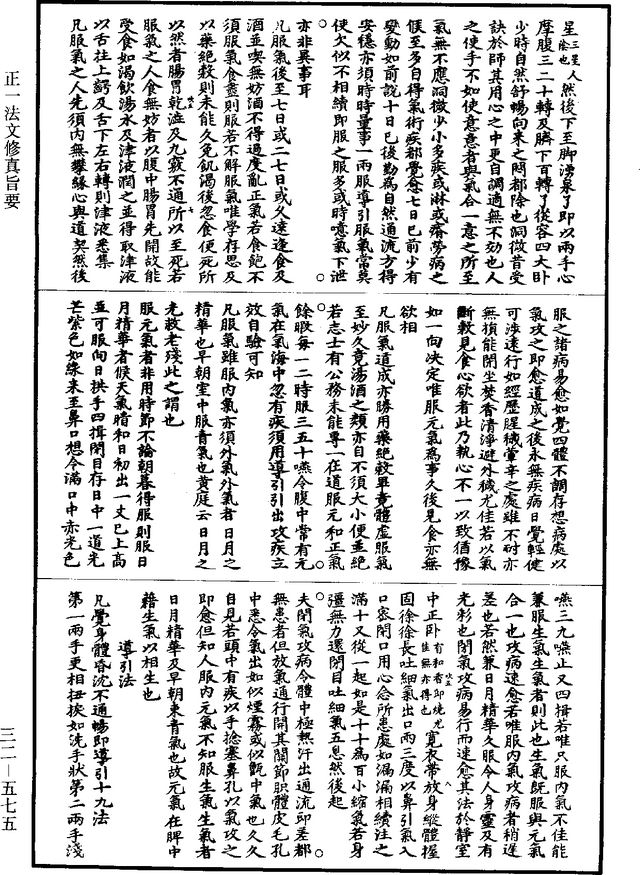 星三星陰也人然後下至脚湧泉了即以兩手心
摩腹三二十轉及臍下百轉了從容四大卧
少時自然舒暢向來之悶都除也洞微昔受
訣於師其用心之中更自調適無不効也人
之使手不如使意意者與氣合一意之所至
氣無不應洞微少小多疾或淋或瘠勞病之
候至多自得氣術疾都覺愈七日已前少有
變動如前說十日已後勤為自然通流方得
安穩亦須時時量事一兩服導引服氣常莫
使欠似不相續即服之服多或時噫氣下泄
亦非異事耳
凡服氣後至七日或二七日或久遠逢食及
酒並喫無妨酒不得過度亂正氣若食飽不
須服氣食盡則服若不解服氣唯學存思及
以藥絕穀則未能久免飢渴後忽食便死所
以然者腸胃乾澁及九竅不通所以至死若
服氣之人食無妨者以腹中腸胃先開故能
受食如渴飲湯水及津液潤之並得取津液
以舌拄上齶及舌下左右轉則津液悉集
凡服氣之人先須內無攀緣心與道契然後
服之諸病易愈如覺四體不調存想病處以
氣攻之即愈道成之後永無疾病日覺輕健
可涉遠行如經歷腥穢葷辛之處雖不耐亦
無損能開坐焚香清淨避外穢尤佳若以氣
斷穀見食心欲者此乃執心不一以致猶豫
如一向决定唯服元氣為事久後見食亦無
欲相
凡服氣道成亦勝用藥絕穀草竟體虛服氣
至妙久竟湯酒之類亦自不須大小便並絕
若志士有公務未能專一在道服元和正氣
餘暇每一二時服三五十嚥令腹中常有元
氣在氣海中忽有疾須用導引引出攻疾立
效自驗可知
凡服氣雖服內氣亦須外氣外氣者日月之
精華也早朝室中服青氣也黄庭云日月之
光救老殘此之謂也
服元氣者非用時節不論朝暮得服則服日
月精華者候天氣晴和日初出一丈已上高
並可服向日拱手四揖閉目存日中一道光
芒紫色如線來至鼻口想令滿口中赤光色
嚥三九嚥止又四揖若唯只服內氣不佳能
兼服生氣生氣者則此也生氣旣服與元氣
合一也攻病速愈若唯服內氣攻病者稍遲
差也若然兼日月精華久服令人身靈及有
光彩也閉氣攻病易行而速愈其法於靜室
中正卧有和者即燒尤佳無亦得也寬衣帶放身縱體握
固徐徐長吐細氣出口兩三度以鼻引氣入
口容閉口用心念所患處如漏漏相續注之
滿十又從一起如是十十為百小縮氣若身
彊無力還閉目吐細氣五息然後起
夫閉氣攻病令體中極熱汗出通流即差都
無患者但放氣通行開其關節即體皮毛孔
中悉令氣出如似煙霧或似甑中氣也久久
自見若頭中有疾以手捻塞鼻孔以氣攻之
即愈但知人服內元氣不知服生氣生氣者
日月精華及早朝東青氣也故元氣在脾中
藉生氣以相生也
導引法
凡覺身體昏沈不通暢即導引十九法
第一兩手更相扭捩如洗手狀第二兩手淺
正一法文修真旨要
三二—五七五